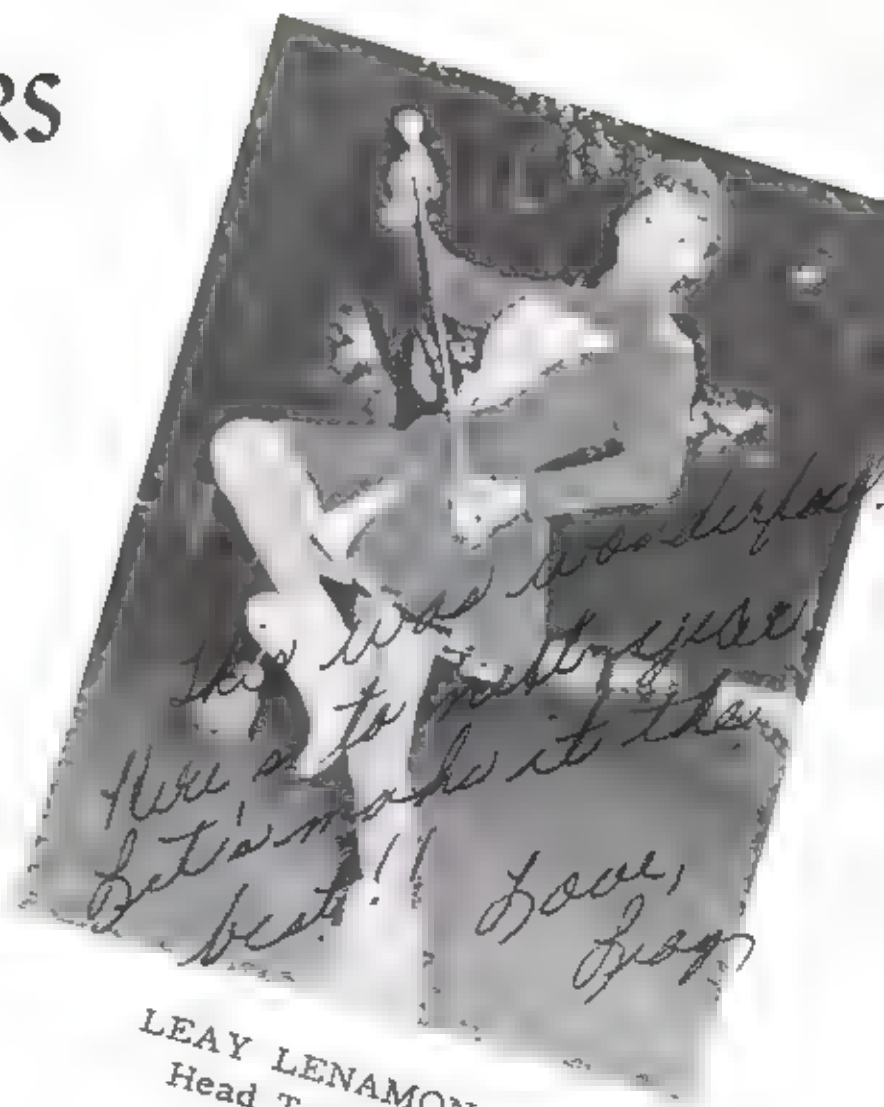 RS
This was wonderful.
Here's to next year
Let's make it the
best!!
Love,
Leay
LEAY LENAMON
Head T